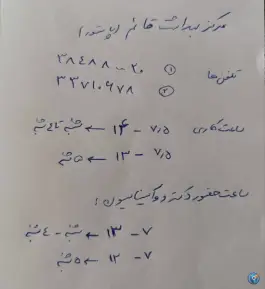 مرکز بهداشت قائم (پاستور)
تلفن ها ① ۳۸۴۸۸ - ۲۰
② ۳۳۷۱۰۹۷۸
ساعت کاری ۷٫۵ - ۱۴ ← شنبه تا ۴ شنبه
۷٫۵ - ۱۳ ← ۵ شنبه
ساعت حضور دکتر و واکسیناسیون:
۷ - ۱۳ ← شنبه - ۴ شنبه
۷ - ۱۲ ← ۵ شنبه